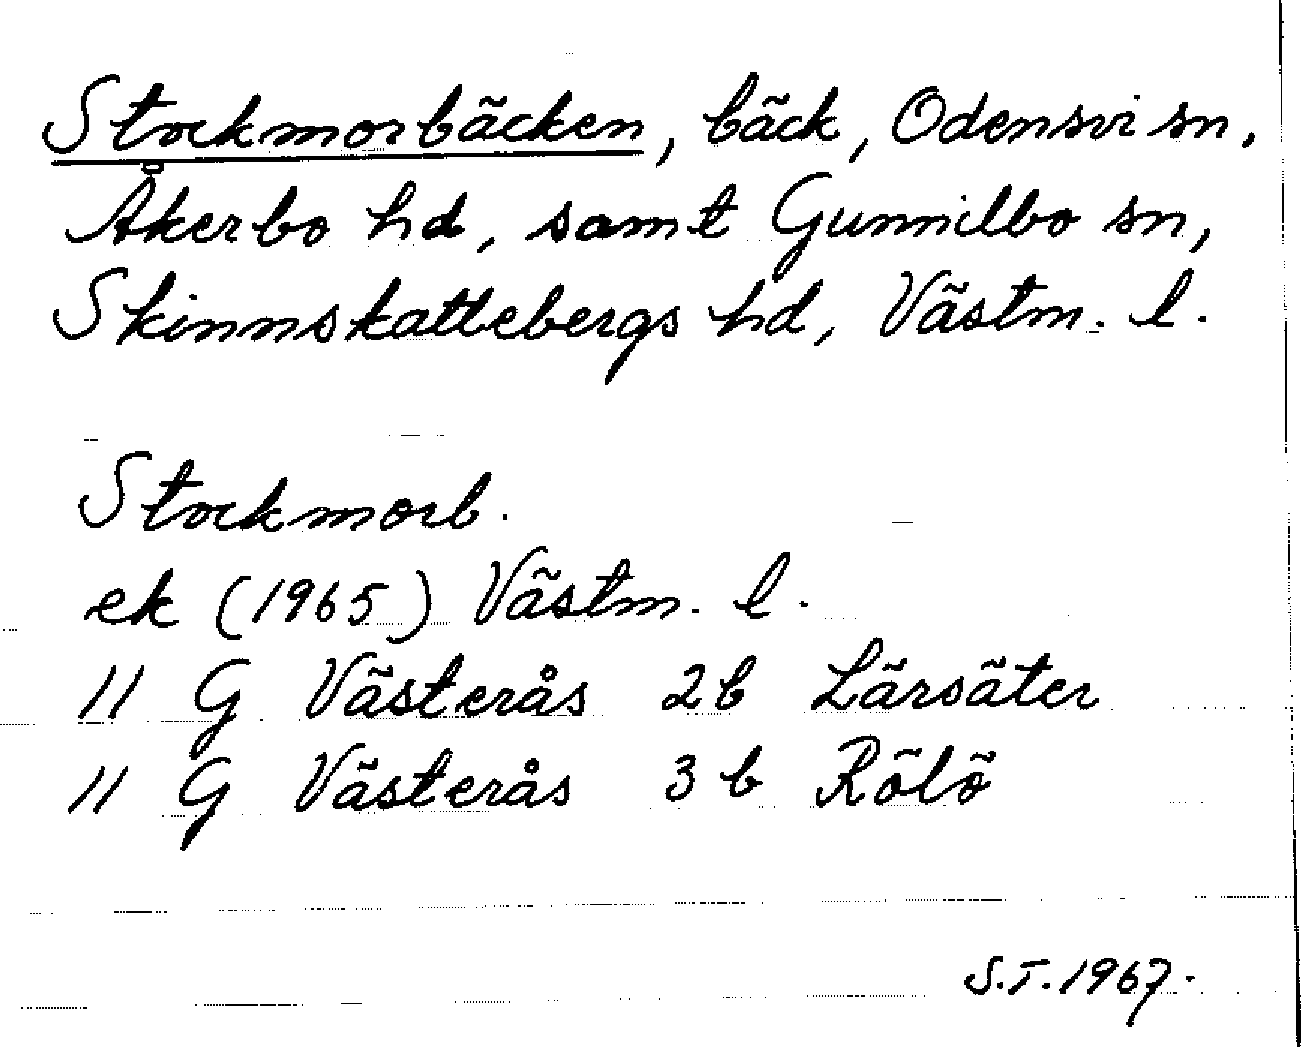 Stockmorbäcken, bäck, Odensvi sn,
Åkerbo hd, samt Gunnilbo sn,
Skinnskattebergs hd, Västm. l.
Stockmorb.
ek (1965) Västm. l.
11 G Västerås 2b Lärsäter
11 G Västerås 3b Rölö
S.T. 1967.